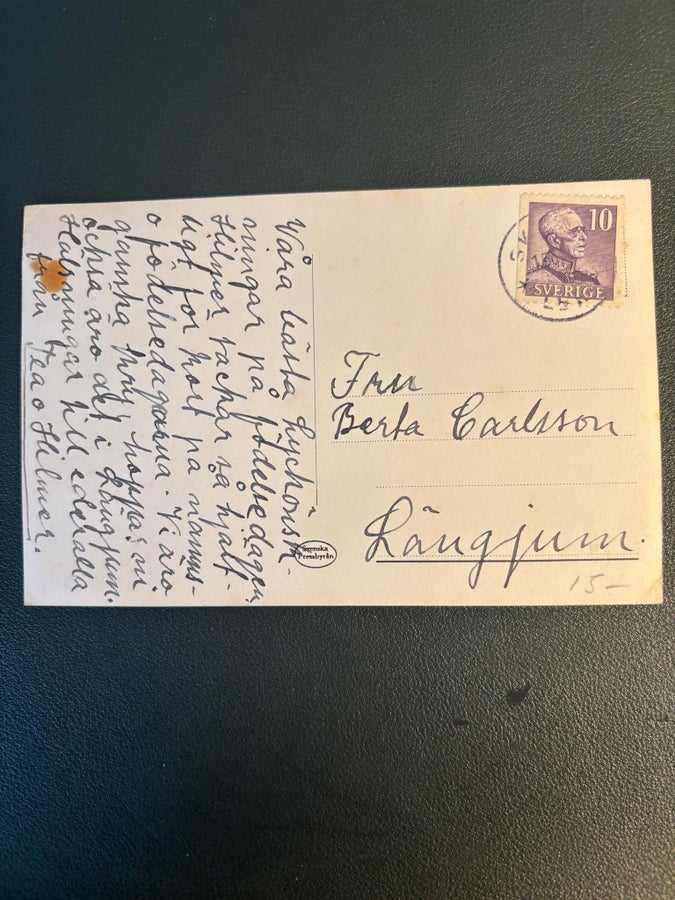 Våra bästa Lyckönsk-
ningar på födelsedagen,
Hilmer tackar så hjält-
ligt för kort på namns-
o födelsedagarna. Vi äro
ganska kry hoppas vi
också äro det i Långjum.
Hälsningar till eder alla
från Tea o Hilmer.
Svenska
Pressbyrån
10
SVERIGE
Fru
Berta Carlsson
Långjum.
15-